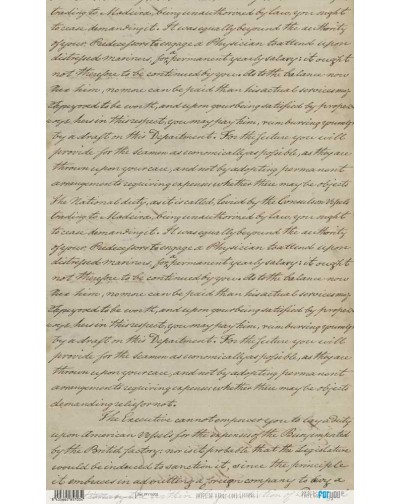 trading to Madeira, being unauthorized by law you ought
to cease demanding it. It was equally beyond the authority
of your Predecessor to engage a Physician to attend upon
distressed mariners, for a permanent yearly salary: it ought
not therefore to be continued by you. As to the balance now
due him, no more can be paid than his actual services may
be proved to be worth, and upon your being satisfied by proper
in this respect, you may pay him, reimbursing yourself
by a draft on this Department. For the future you will
provide for the seamen as economically as possible, as they are
thrown upon your care, and not by adopting permanent
arrangements requiring expenses whether there may be objects
The National duty, as it is called, levied by the Consul on Vessels
trading to Madeira, being unauthorized by law you ought
to cease demanding it. It was equally beyond the authority
of your Predecessor to engage a Physician to attend upon
distressed mariners, for a permanent yearly salary: it ought
not therefore to be continued by you. As to the balance now
due him, no more can be paid than his actual services may
be proved to be worth, and upon your being satisfied by proper
in this respect, you may pay him, reimbursing yourself
by a draft on this Department. For the future you will
provide for the seamen as economically as possible, as they are
thrown upon your care, and not by adopting permanent
arrangements requiring expenses whether there may be objects
demanding relief or not.
The Executive cannot empower you to lay a duty
upon American Vessels for the expenses of the Burying
by the British factory: nor is it probable that the Legislature
would be induced to sanction it, since the principle
it embraces in admitting a foreign company to lay a
PAPERS FOR YOU